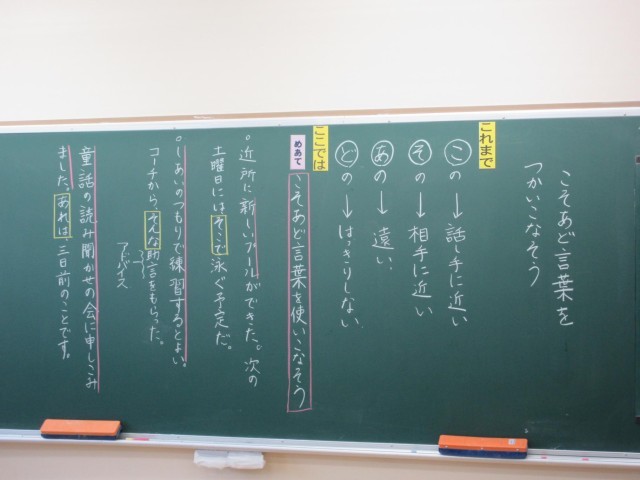 こそあど言葉を
つかいこなそう
これまで
この→話し手に近い
その→相手に近い
あの→遠い
どの→はっきりしない
ここでは
めあて
こそあど言葉を使いこなそう
・近所に新しいプールができた。次の
土曜日にはそこで泳ぐ予定だ。
・しあいのつもりで練習するとよい。
コーチから、そんな助言をもらった。
アドバイス
童話の読み聞かせの会に申しこみ
ました。あれは、三日前のことです。